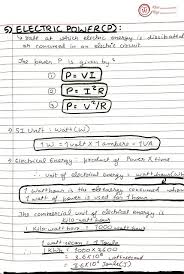 5) ELECTRIC POWER (P):
→ Rate at which electric energy is dissipated
or consumed in an electric circuit
The power P is given by
① P = VI
② P = I²R
③ P = V²/R
SI Unit: Watt (W)
1W = 1 volt × 1 ampere = 1VA
Electrical Energy: product of Power × time
∴ Unit of electrical energy = watt hours (Wh)
1 watt hour is the energy consumed when
1 watt of power is used for 1 hour
The commercial unit of electrical energy is
1 kilo watt hour = 1000 watt hour
1 watt second = 1 Joule
1 KWh = 1000 × 3600
= 3.6×10⁶ wattsecond
= 3.6×10⁶ Joules